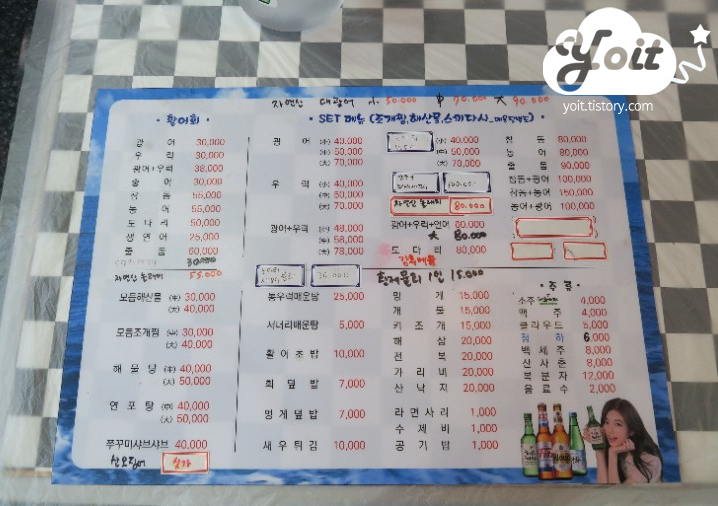 Yoit
yoit.tistory.com
자연산 대광어 小 50.000 中 70.000 大 90.000
· 활어회 ·
광어 30,000
우럭 30,000
광어+우럭 38,000
숭어 30,000
참돔 55,000
농어 55,000
도다리 50,000
생연어 25,000
줄돔 60,000
30,000
자연산 놀래미 55.000
모듬해산물 (中) 30,000
(大) 40,000
모듬조개찜 (中) 30,000
(大) 40,000
해물탕 (中) 40,000
(大) 50,000
연포탕 (中) 40,000
(大) 50,000
쭈꾸미샤브샤브 40,000
산오징어 싯가
· SET 메뉴 (조개찜,해산물,스끼다시,매운탕)
광어 (小) 40,000
(中) 50,000
(大) 70,000
우럭 (小) 40,000
(中) 50,000
(大) 70,000
광어+우럭 (小) 48,000
(中) 58,000
(大) 78,000
(小) 40,000
(中) 50,000
(大) 70,000
자연산 놀래미 80.000
광어+우럭+연어 60,000
大 80.000
도다리 80,000
참돔 80,000
농어 80,000
줄돔 90,000
참돔+광어 100,000
참돔+농어 150,000
농어+광어 100,000
통우럭매운탕 25,000
서더리매운탕 5,000
활어초밥 10,000
회덮밥 7,000
멍게덮밥 7,000
새우튀김 10,000
1인 15.000
멍게 15,000
개불 15,000
키조개 15,000
해삼 20,000
전복 20,000
가리비 20,000
산낙지 20,000
라면사리 1,000
수제비 1,000
공기밥 1,000
· 주류 ·
소주 4,000
맥주 4,000
클라우드 5,000
청하 6,000
백세주 8,000
산사춘 8,000
복분자 12,000
음료수 2,000